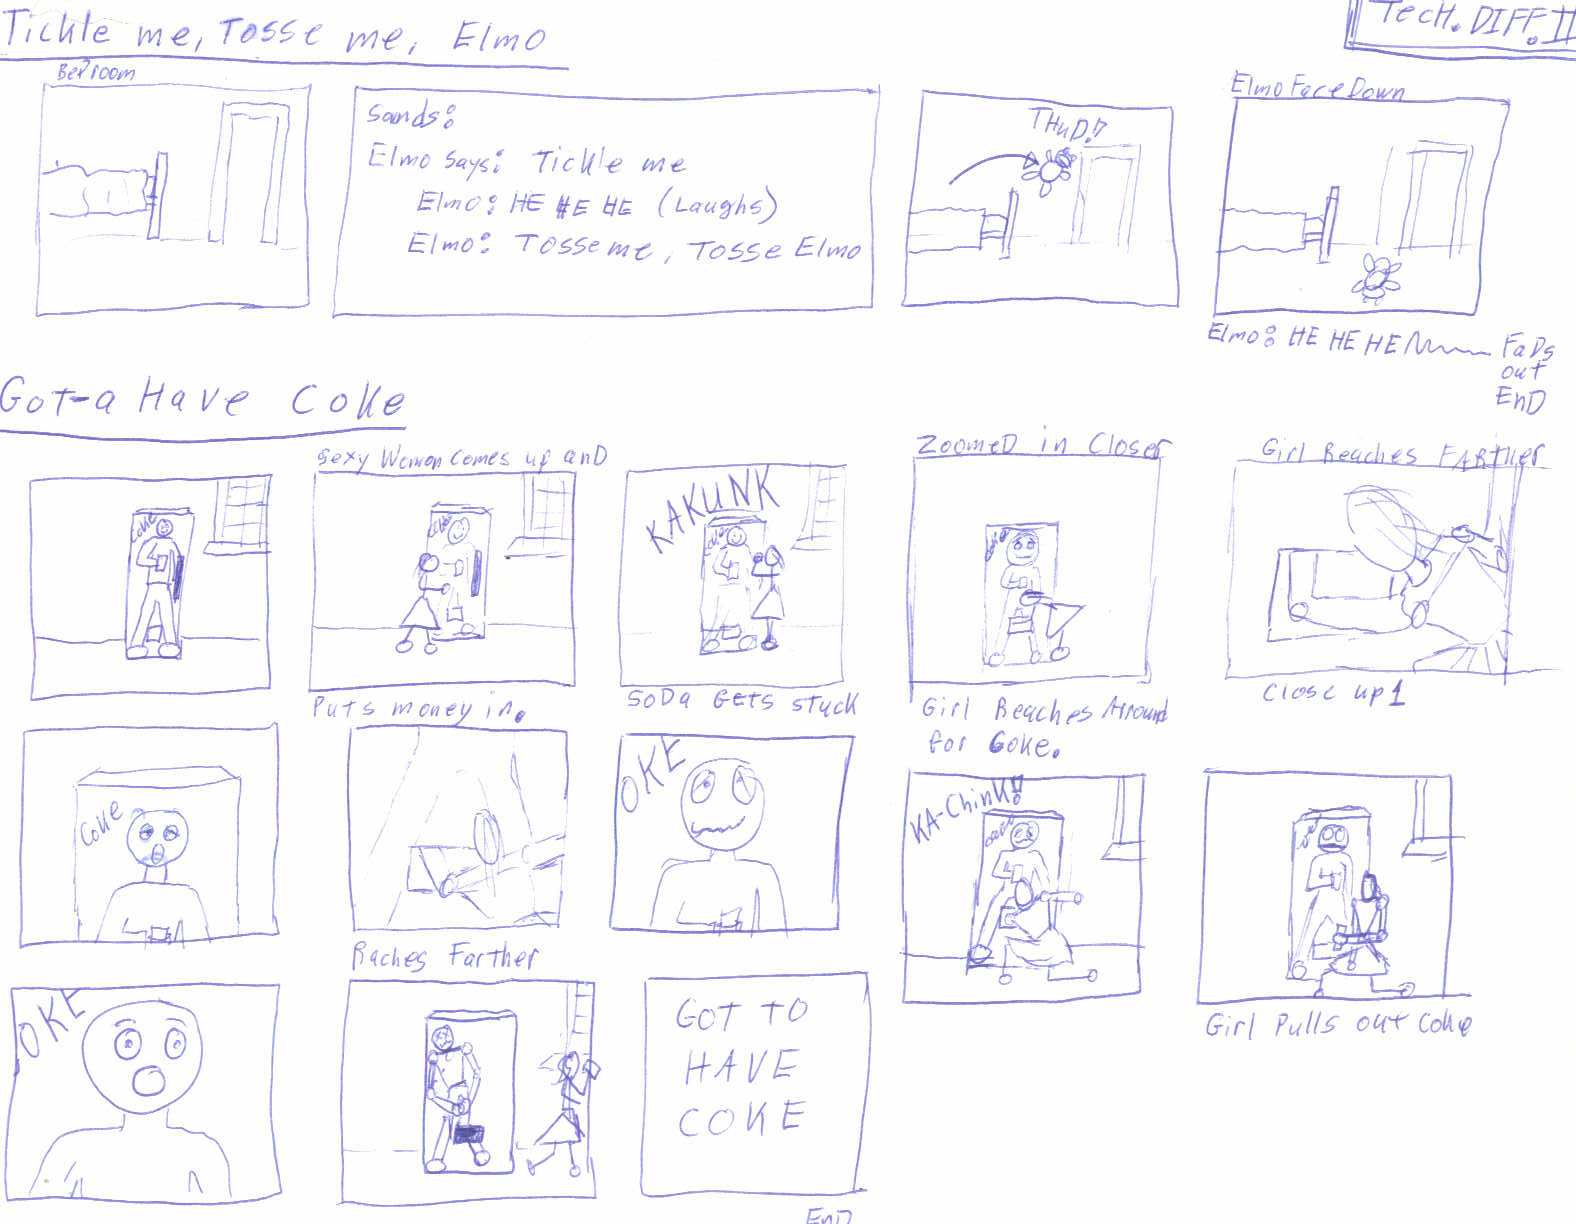 Tickle me, Tosse me, Elmo
TecH. DIFF. II
BeDroom
Sounds:
Elmo says: Tickle me
Elmo: HE HE HE (Laughs)
Elmo: Tosse me, Tosse Elmo
THuD!!
Elmo Face Down
Elmo: HE HE HE
FaDs
out
EnD
Got-a Have Coke
Coke
Sexy Woman comes up anD
Coke
Puts money in.
KAKUNK
Coke
SoDa Gets stuck
ZoomeD in Closer
Coke
Girl Reaches Around
for Coke.
Girl Reaches FARther
Close up 1
Coke
Raches Farther
OKE
KA-ChinK!!
Girl Pulls out Coke
OKE
GOT TO
HAVE
COKE
EnD